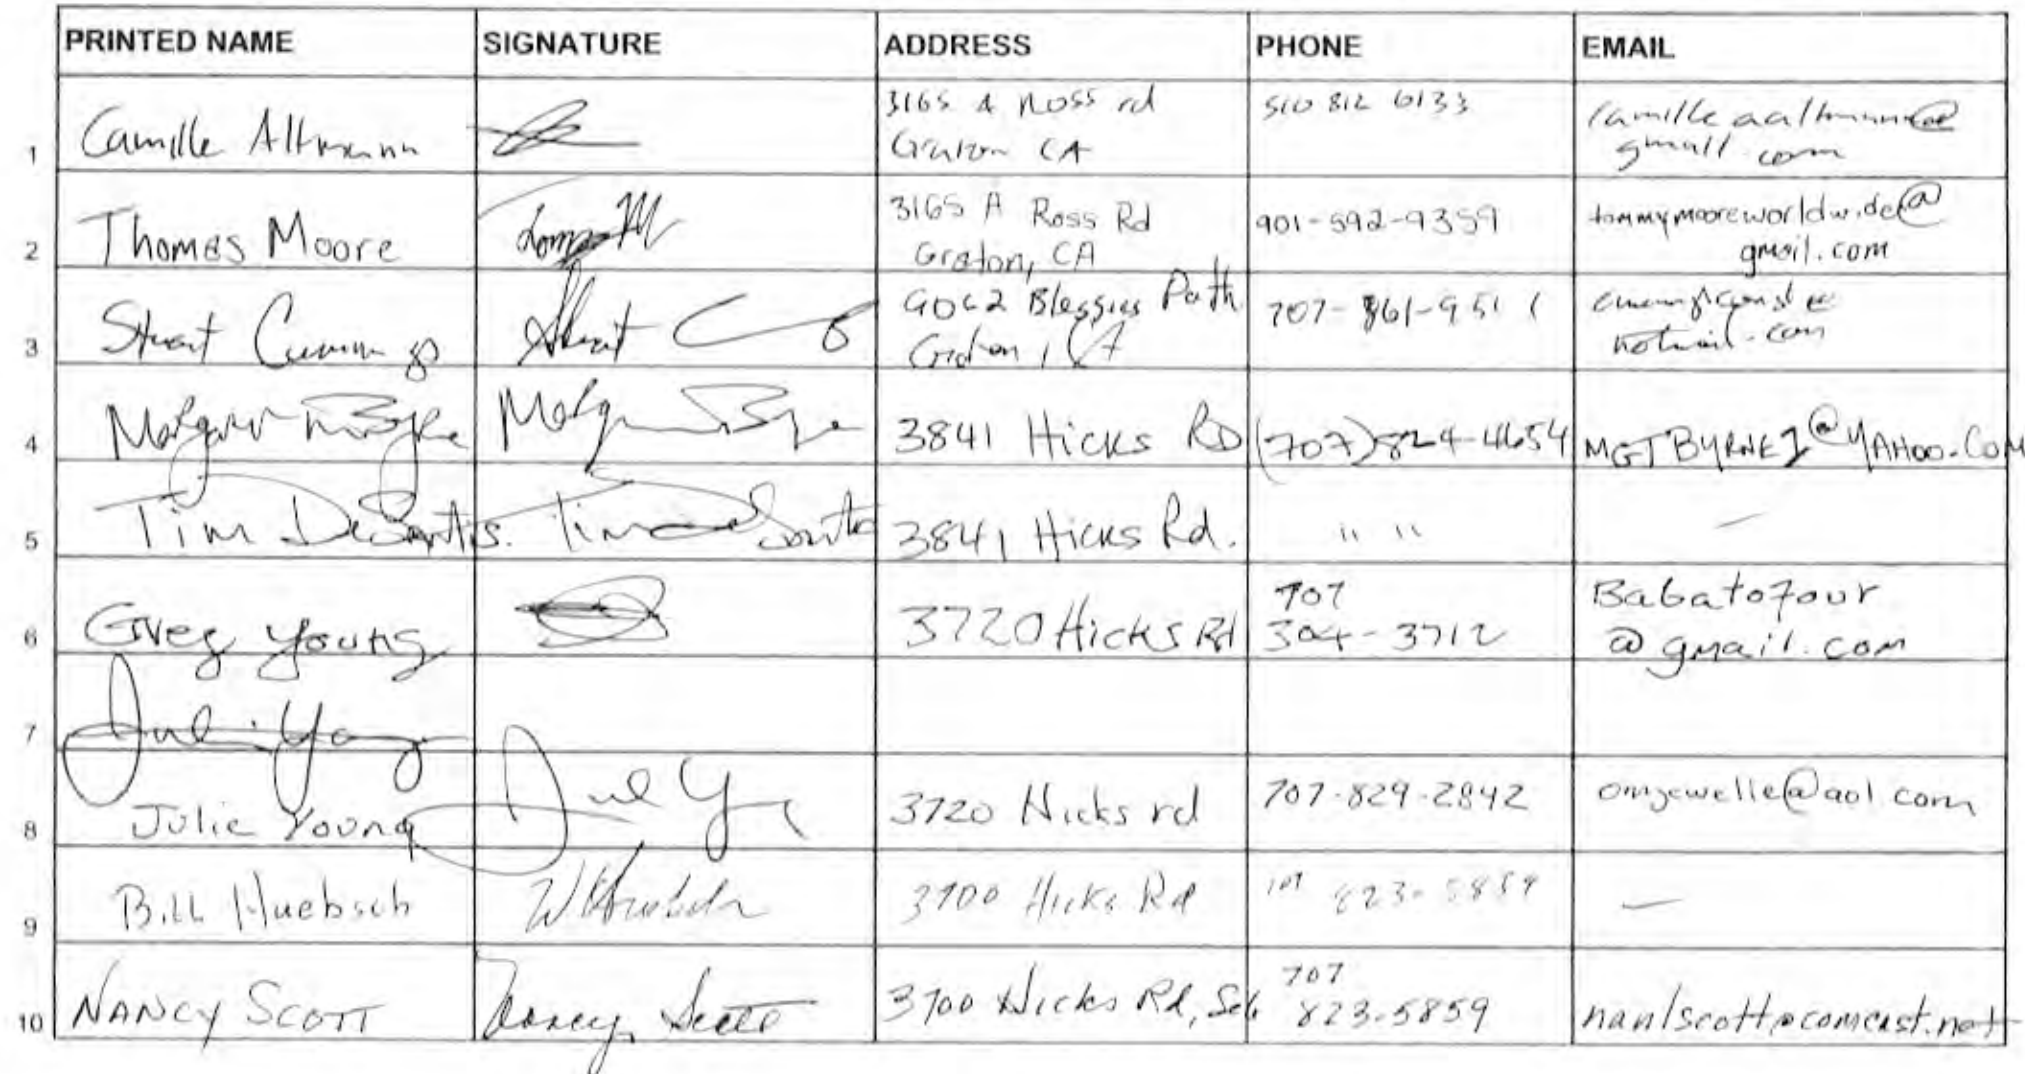 PRINTED NAME SIGNATURE ADDRESS PHONE EMAIL
1 Camille Altmann 3165 A Ross rd 510 812 6133
Graton CA gmail.com
2 Thomas Moore 3165 A Ross Rd 901-592-9359 tommymooreworldwide@
Graton, CA gmail.com
3 Stuart Cummings Stuart C 9062 Blessing Path 707-861-9511
Graton, CA hotmail.com
4 Margaret Byrne 3841 Hicks RD (707)824-4654 MGTBYRNE1@YAHOO.COM
5 Tim DeSantis. Tim DeSantis 3841 Hicks Rd. " " —
6 Greg Young 3720 Hicks Rd 707
304-3712 Babatofour
@gmail.com
7 Julie Young
8 Julie Young 3720 Hicks rd 707-829-2842 omjewelle@aol.com
9 Bill Huebsch WHuebsch 3700 Hicks Rd 707 823-5859 —
10 NANCY SCOTT Nancy Scott 3700 Hicks Rd, Seb 707
823-5859 nanlscott@comcast.net